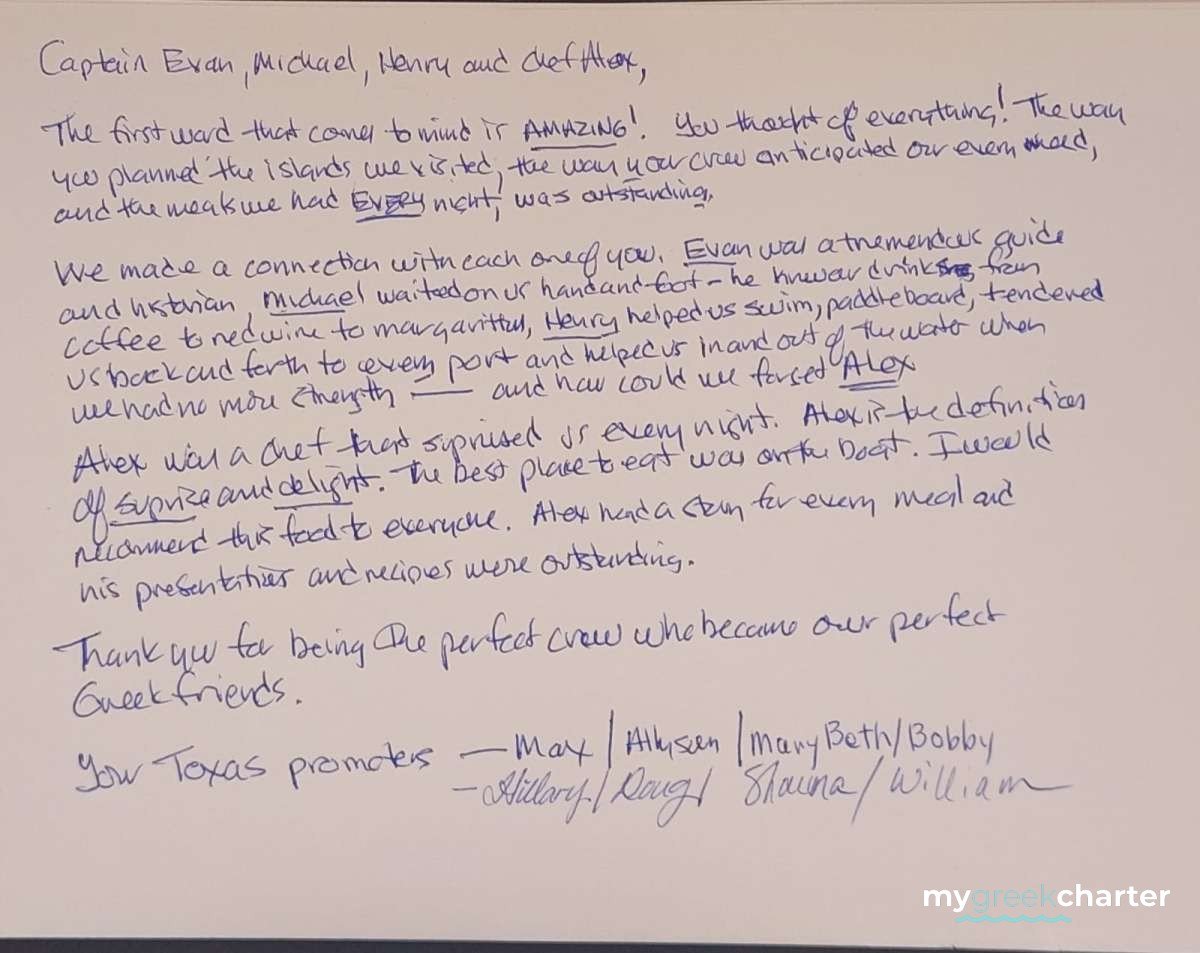 Captain Evan, Michael, Henry and Chef Alex,
The first word that comes to mind is AMAZING! You thought of everything! The way
you planned the islands we visited, the way your crew anticipated our every need,
and the meals we had EVERY night, was outstanding.
We made a connection with each one of you. Evan was a tremendous guide
and historian, Michael waited on us hand and foot - he knew our drinks from
coffee to red wine to margarittas, Henry helped us swim, paddleboard, tendered
us back and forth to every port and helped us in and out of the water when
we had no more strength — and how could we forget Alex
Alex was a chef that suprised us every night. Alex is the definition
of suprize and delight. The best place to eat was on the boat. I would
recommend this food to everyone. Alex had a story for every meal and
his presentations and recipes were outstanding.
Thank you for being the perfect crew who became our perfect
Greek friends.
Your Texas promoters — Max / Allysen / Mary Beth / Bobby
- Hillary / Doug / Shauna / William
mygreekcharter